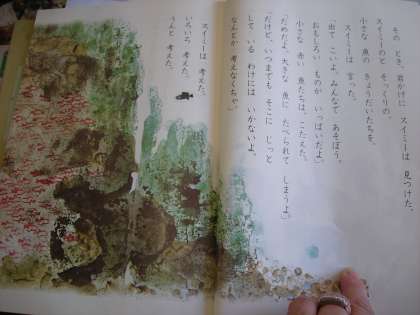 その とき、岩かげに スイミーは 見つけた、
スイミーのと そっくりの、
小さな 魚の きょうだいたちを。
スイミーは 言った。
「出て こいよ。みんなで あそぼう。
おもしろい ものが いっぱいだよ。」
小さな 赤い 魚たちは、こたえた。
「だめだよ。大きな 魚に たべられて しまうよ。」
「だけど、いつまでも そこに じっと
して いる わけには いかないよ。
なんとか 考えなくちゃ。」
スイミーは 考えた。
いろいろ 考えた。
うんと 考えた。